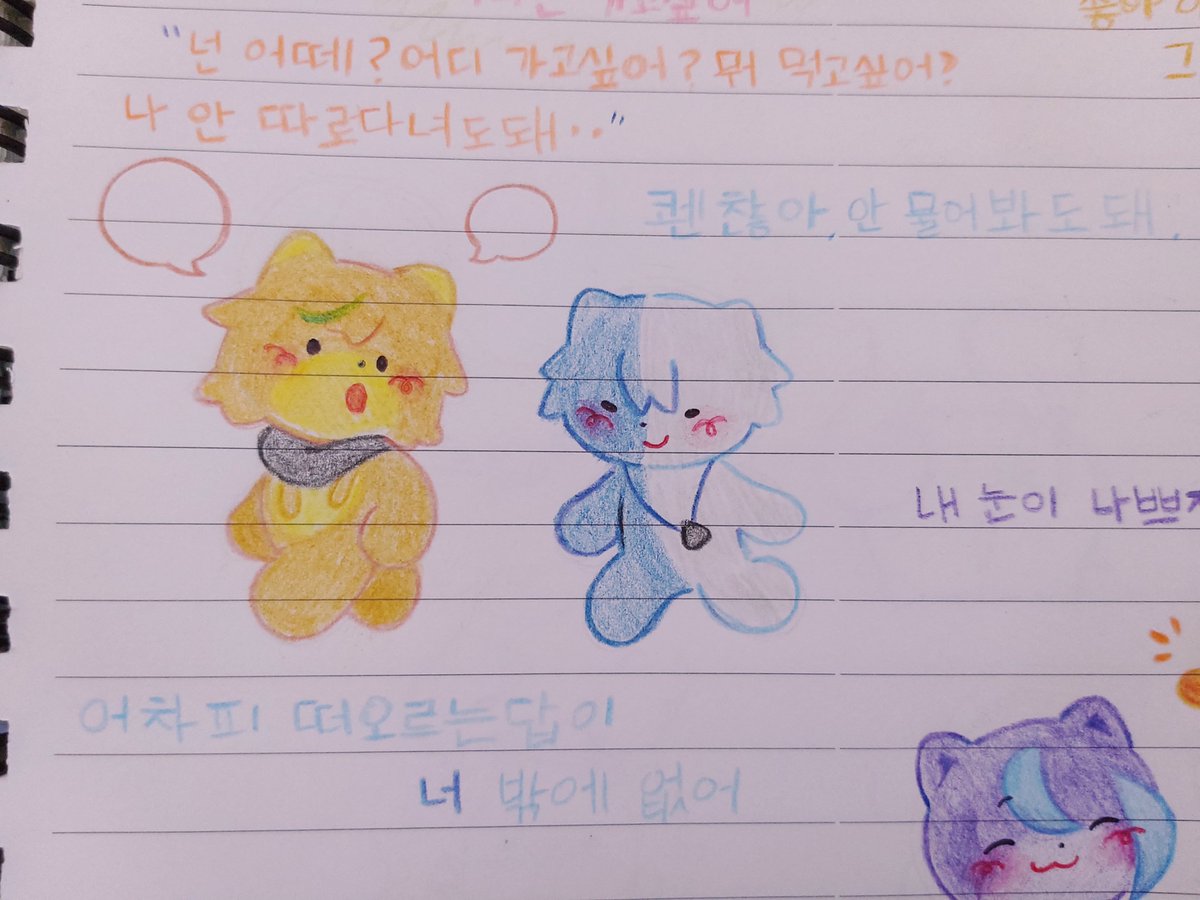 "넌 어떼?어디 가고싶어?뭐 먹고싶어?
그
나 안 따로다녀도돼.."
찮아, 안 물어봐도돼.
내 눈이 나쁘
어차피 떠오르는답이
너 밖에 없어